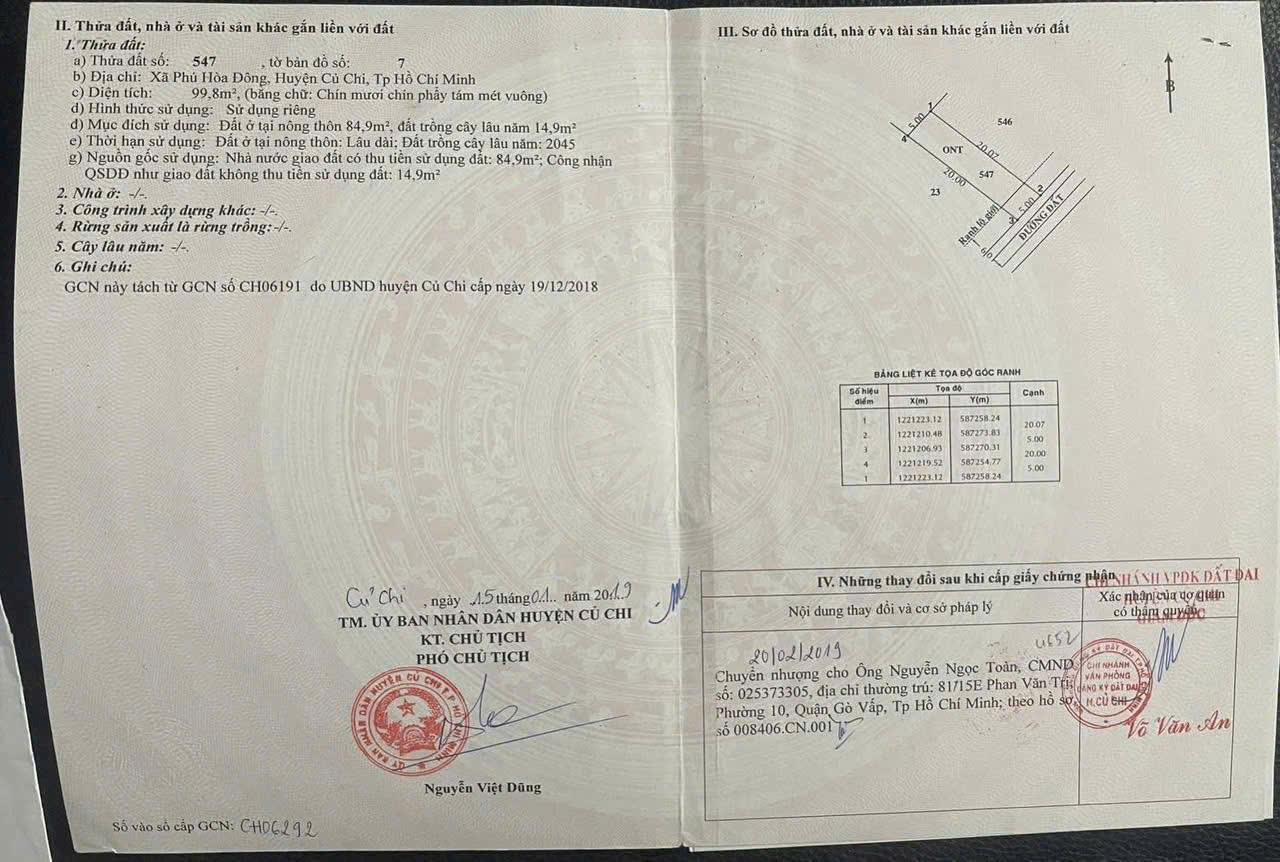 II. Thửa đất, nhà ở và tài sản khác gắn liền với đất
1. Thửa đất:
a) Thửa đất số: 547 , tờ bản đồ số: 7
b) Địa chỉ: Xã Phú Hòa Đông, Huyện Củ Chi, Tp Hồ Chí Minh
c) Diện tích: 99,8m², (bằng chữ: Chín mươi chín phẩy tám mét vuông)
d) Hình thức sử dụng: Sử dụng riêng
đ) Mục đích sử dụng: Đất ở tại nông thôn 84,9m², đất trồng cây lâu năm 14,9m²
e) Thời hạn sử dụng: Đất ở tại nông thôn: Lâu dài; Đất trồng cây lâu năm: 2045
g) Nguồn gốc sử dụng: Nhà nước giao đất có thu tiền sử dụng đất: 84,9m²; Công nhận
QSDĐ như giao đất không thu tiền sử dụng đất: 14,9m²
2. Nhà ở: -/-.
3. Công trình xây dựng khác: -/-.
4. Rừng sản xuất là rừng trồng:-/-.
5. Cây lâu năm: -/-.
6. Ghi chú:
GCN này tách từ GCN số CH06191 do UBND huyện Củ Chi cấp ngày 19/12/2018
Củ Chi , ngày 15 tháng 01 năm 2019
TM. ỦY BAN NHÂN DÂN HUYỆN CỦ CHI
KT. CHỦ TỊCH
PHÓ CHỦ TỊCH
Nguyễn Việt Dũng
Số vào sổ cấp GCN: CH06292
III. Sơ đồ thửa đất, nhà ở và tài sản khác gắn liền với đất
B
1
5.00
4
546
ONT
20.07
547
20.00
23
2
5.00
3
Ranh lộ giới
ĐƯỜNG ĐẤT
6.0
BẢNG LIỆT KÊ TỌA ĐỘ GÓC RANH
Số hiệu điểm Tọa độ Cạnh
X(m) Y(m)
1 1221223.12 587258.24
20.07
2 1221210.48 587273.83
5.00
3 1221206.93 587270.31
20.00
4 1221219.52 587254.77
5.00
1 1221223.12 587258.24
IV. Những thay đổi sau khi cấp giấy chứng nhận
CHI NHÁNH VPĐK ĐẤT ĐAI
Nội dung thay đổi và cơ sở pháp lý
Xác nhận của cơ quan
có thẩm quyền
GIÁM ĐỐC
20/02/2019
4652
Chuyển nhượng cho Ông Nguyễn Ngọc Toàn, CMND
số: 025373305, địa chỉ thường trú: 81/15E Phan Văn Trị,
Phường 10, Quận Gò Vấp, Tp Hồ Chí Minh; theo hồ sơ
số 008406.CN.001
CHI NHÁNH
VĂN PHÒNG
ĐĂNG KÝ ĐẤT ĐAI
H.CỦ CHI
Võ Văn An